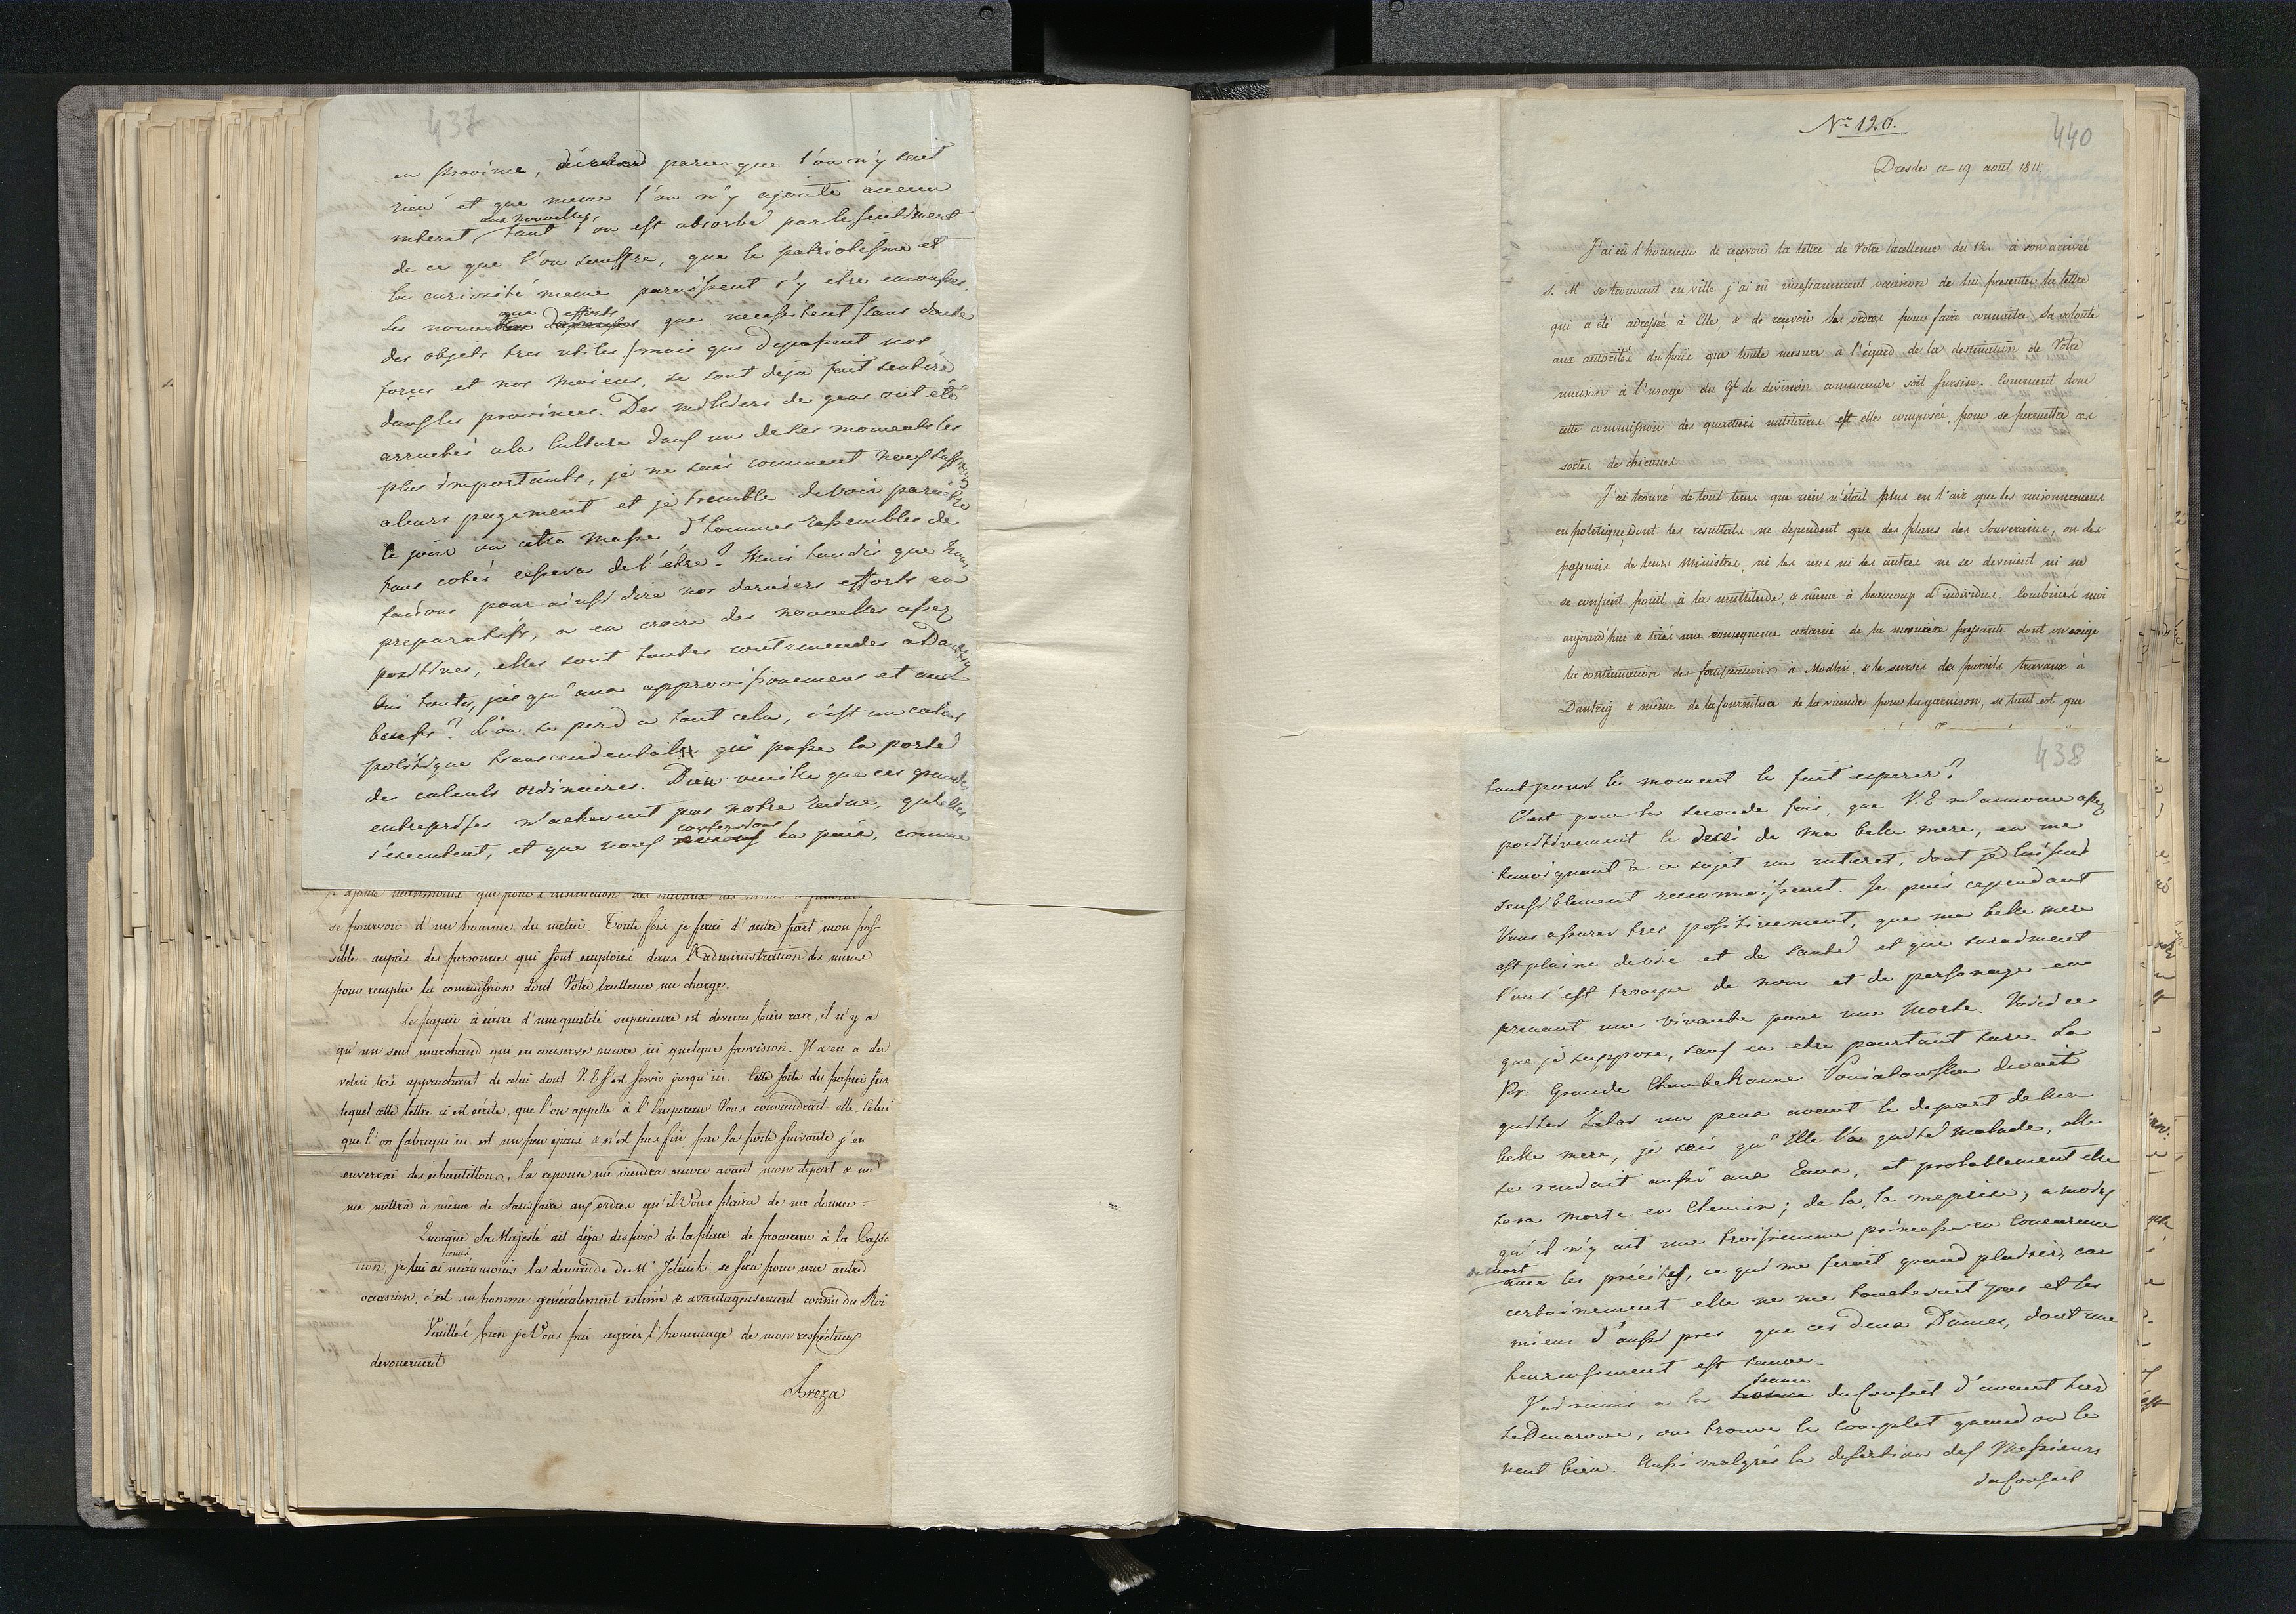 437
en province, d'abord parce que l'on n'y sent
rien et que meme l'on n'y ajoute aucun
aux nouvelles,
interet, tant l'on est absorbé par le sentiment
de ce que l'on souffre, que le patriotisme et
la curiosité meme paroissent s'y etre emousses.
aux efforts
Les nouveaux que necessitent sans doute
des objets tres utiles, mais qui depassent nos
forces et nos moiens, se sont deja fait sentire
dans les provinces. Des milliers de gens ont été
arrachés a la culture dans un de ses moments les
plus importants, je ne sais comment nous
a leurs payement et je tremble de voir paroitre
le jour ou cette masse d'hommes rassemblés de
tous cotés cessera de l'être? Mais tandis que nous
faisons pour ainsi dire nos derniers efforts en
preparatifs, a en croire des nouvelles assez
positives, elles sont toutes contremendes a Dantzig
Oui toutes, jusqu'aux approvisionemens et aux
beufs? L'on se perd a tout cela, c'est un calcul
politique transcendental qui passe la porté
de calculs ordinaires. Dieu veuille que ces grandes
entreprises n'achevent pas notre ruine, qu'elles
s'executent, et que nous la paix, comme
se pourvoir d'un homme du metier. Toute fois je ferai d'autre part mon pos-
sible auprès des personnes qui sont emploiés dans l'administration des mines
pour remplir la commission dont Votre Excellence me charge.
Le papier à écrire d'une qualité superieure est devenu bien rare, il n'y a
qu'un seul marchand qui en conserve encore ici quelque provision. Il a en a du
velin très approchant de celui dont V. E. s'est servie jusqu'ici. Cette sorte du papier sur
lequel cette lettre ci est écrite, que l'on appelle à l'Empereur Vous conviendrait-elle. Celui
que l'on fabrique ici est un peu épais & n'est pas fin par la poste suivante j'en
enverrai des échantillons, la reponse me viendra encore avant mon depart & me
me mettra à même de satisfaire aux ordres qu'il Vous plaira de me donner.
Quoique Sa Majesté ait déja disposé de la place de procureur à la Cassa
tion, je lui ai néanmoins la demande de Mr se sera pour une autre
occasion, c'est un homme généralement estimé & avantageusement connu du Roi
Veuillés bien je Vous prie agréer l'hommage de mon respectueux
devouement
Breza
Nr. 120.
440
Dresde ce 19 aout 1811.
J'ai eû l'honneur de reçevoir la lettre de Votre Excellence du 12. à son arrivée
S. M. se trouvant en ville j'ai eû incessamment occasion de lui presenter la lettre
qui a été adressée à Elle & de recevoir Ses ordres pour faire connoitre Sa volonté
aux autorités du païs que toute mesure à l'égard de la destination de Votre
maison à l'usage du Gl de division commande soit sursise. Comment donc
cette commission des quartiers militaires est-elle composée, pour se permettre ces
sortes de chicanes
J'ai trouvé de tout tems que rien n'était plus en l'air que les raisonnemens
en politique dont les resultats ne dependent que des plans des Souverains, ou des
passions de leurs Ministres, ni les uns ni les autres ne se devinent ni ne
se confient point à la multitude, & même à beaucoup d'individus. Combinés moi
aujourd'hui & tirés une consequence certaine de la manière pressante dont on exige
la continuation de fortifications à Modlin & le sursis des pareils travaux à
Dantzig & même de la fourniture de la viande pour la garnison, si tant est que
438
tout pour le moment le fait esperer?
C'est pour la seconde fois, que V. E m'annonce assez
positivement le decés de ma belle mere, en me
temoignant à ce sujet un interet, dont je lui suis
sensiblement reconnoissant. Je puis cependant
Vous assurer tres positivement, que ma belle mere
est plaine de vie et de santé et que surement
l'on s'est trompe de nom et de personage en
prenant une vivante pour une Morte. Voici ce
que je suppose, sans en etre pourtant sure. La
Pr. Grande Chambellanne Poniatowska devait
quitter un peux avant le depart de ma
belle mere, je sais qu'Elle l'a quitté malade, elle
se rendait aussi aux Eaux, et probablement elle
sera morte en chemin; de la, la meprise, a moins
qu'il n'y ait une troisiemme princesse en concurence
de mort
avec les précités, ce qui me feroit grand plaisir, car
certainement elle ne me toucheroit pas et les
miens d'aussi pres que ces deux Dames, dont une
heureusement est sauve.
seance
J'ai reunis a la du Conseil d'avant hier
, on trouve le complet quand on le
veut bien. Aussi malgrés la desertion des Messieurs
du Conseil